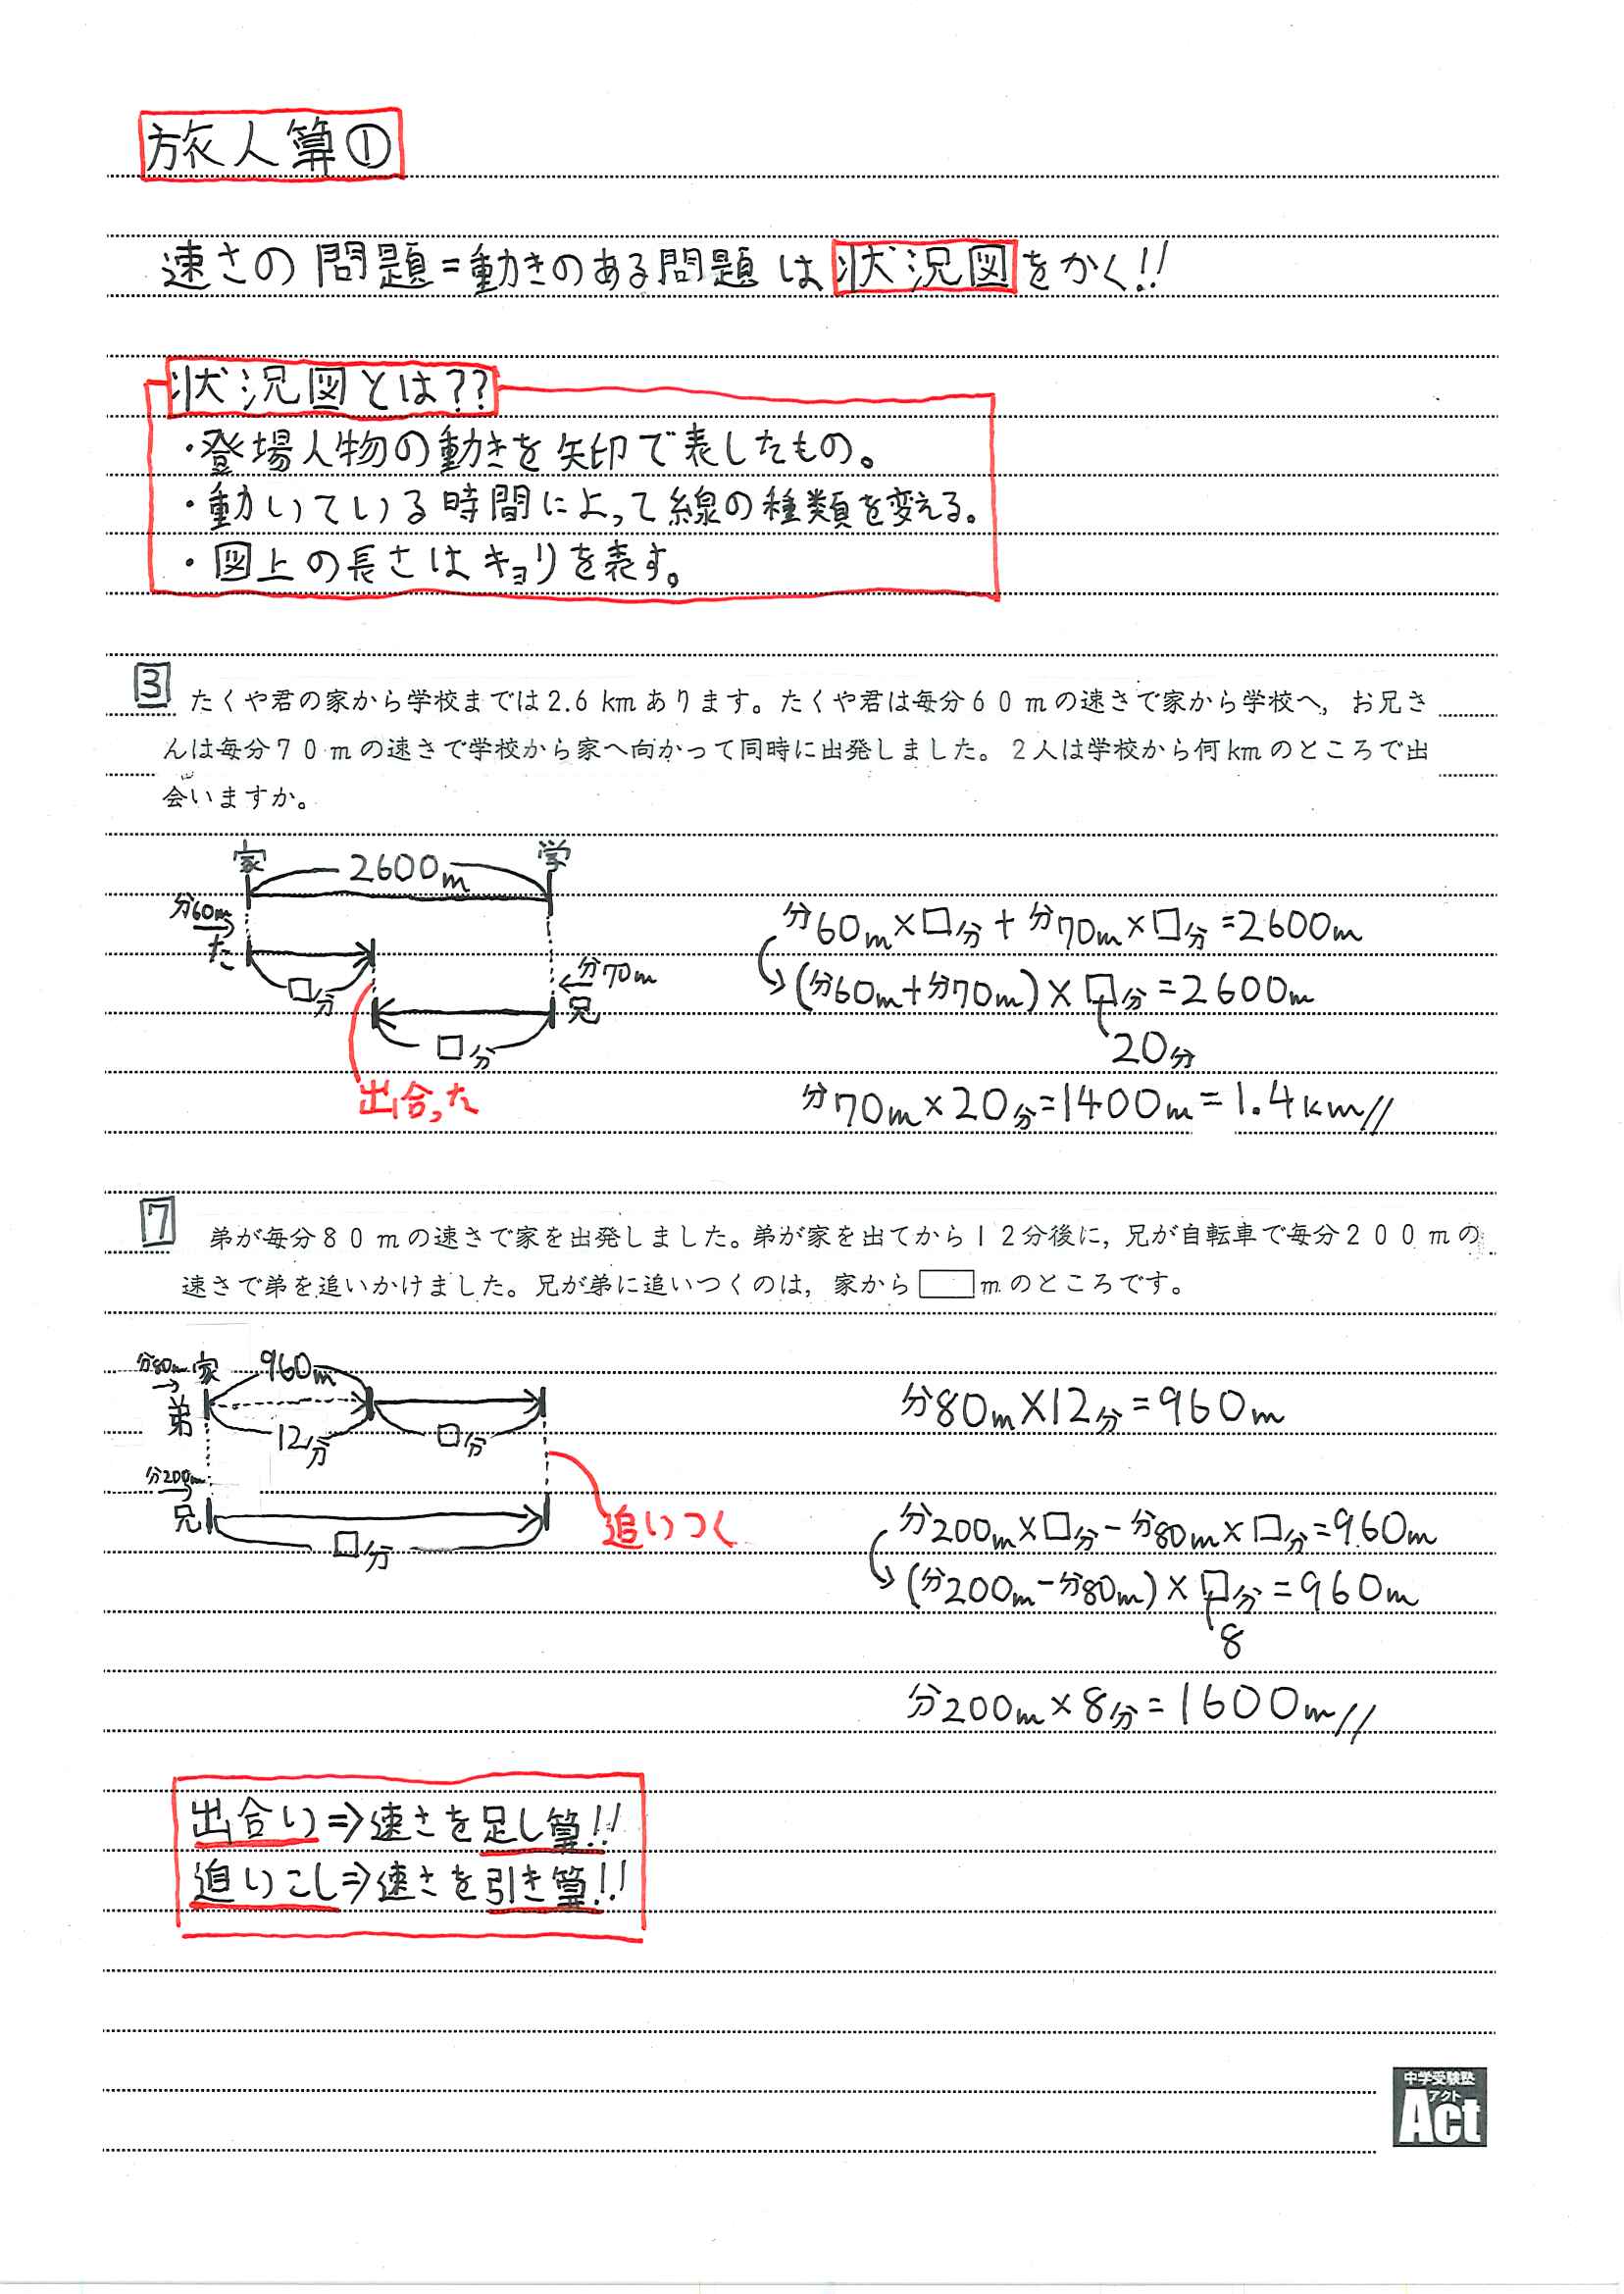 旅人算①
速さの問題=動きのある問題は状況図をかく!!
状況図とは??
・登場人物の動きを矢印で表したもの。
・動いている時間によって線の種類を変える。
・図上の長さはキョリを表す。
3
たくや君の家から学校までは2.6 kmあります。たくや君は毎分60 mの速さで家から学校へ, お兄さ
んは毎分70 mの速さで学校から家へ向かって同時に出発しました。2人は学校から何kmのところで出
会いますか。
家 2600m 学
分60m
た
□分
分70m
兄
□分
出合った
分60m×□分+分70m×□分=2600m
(分60m+分70m)×□分=2600m
20分
分70m×20分=1400m=1.4km//
7
弟が毎分80 mの速さで家を出発しました。弟が家を出てから12分後に, 兄が自転車で毎分200 mの
速さで弟を追いかけました。兄が弟に追いつくのは, 家から□mのところです。
分80m 家 960m
弟
12分 □分
分200m
兄
□分
追いつく
分80m×12分=960m
分200m×□分-分80m×□分=960m
(分200m-分80m)×□分=960m
8
分200m×8分=1600m//
出合い⇒速さを足し算!!
追いこし⇒速さを引き算!!
中学受験塾
アクト
Act